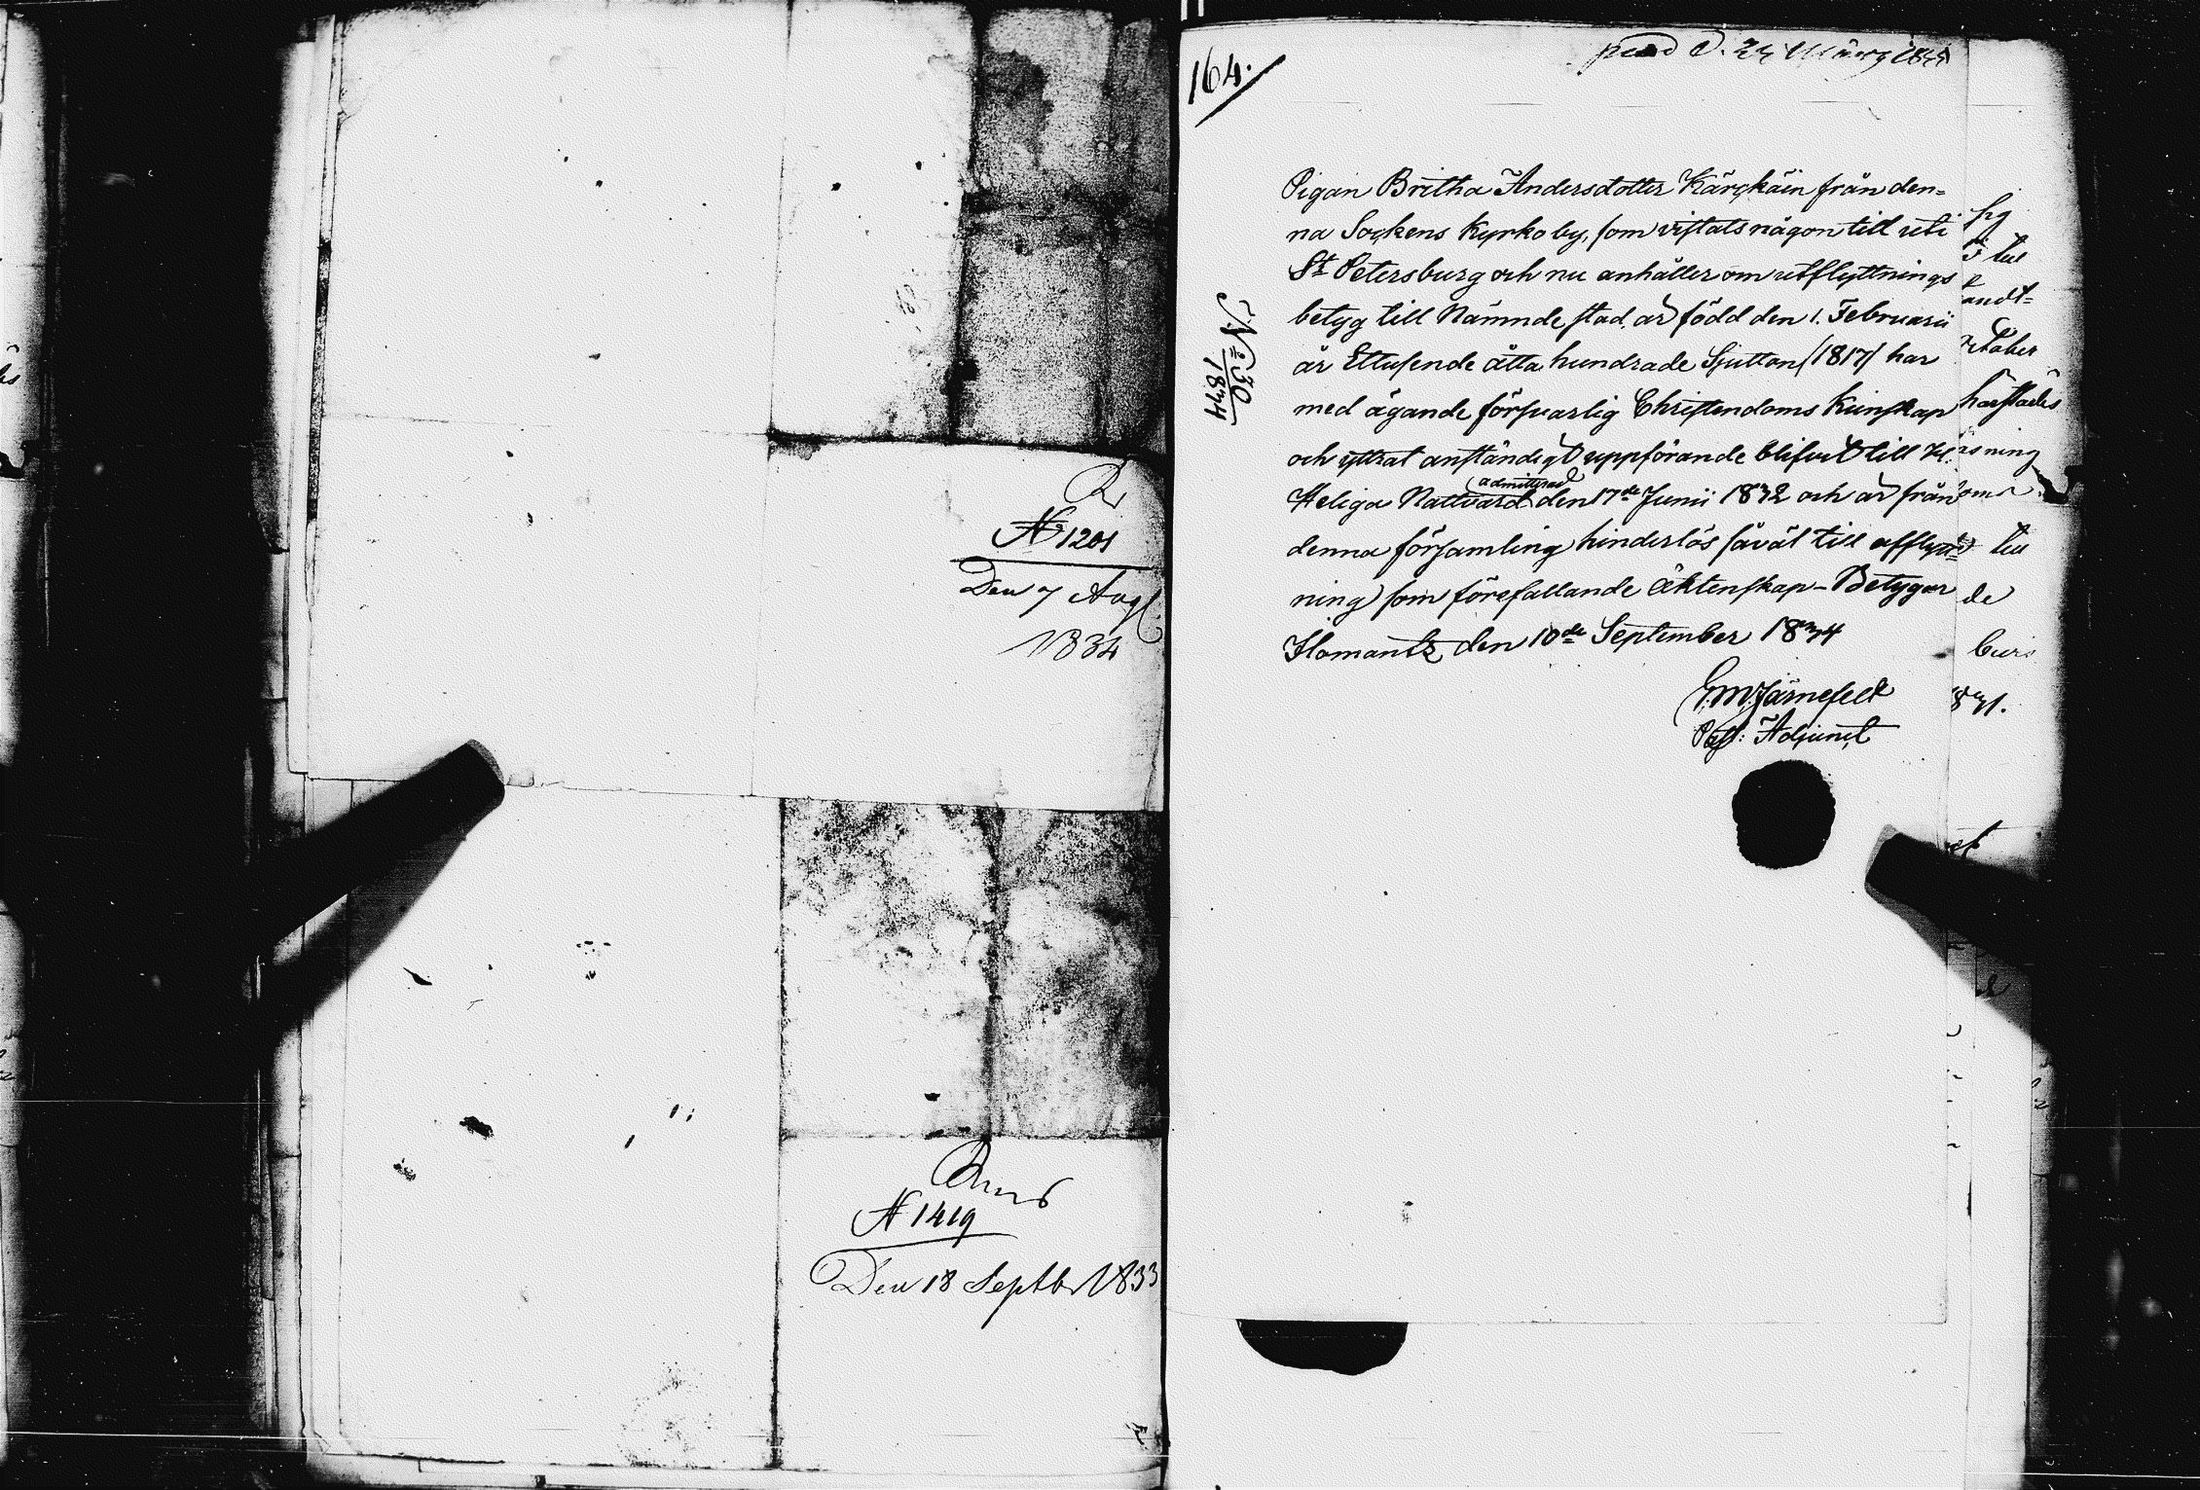 N: 1201
Den 7 Aug
1834
N 1419
Den 18 Septbr 1833
164.
d. 24 Mars
N: 30
1834
Pigan Britha Andersdotter Kärckäin från den=
na Sockens Kyrkoby, som vistats någon tid uti
St Petersburg och nu anhåller om utflyttnings
betyg till Nämnde stad, är född den 1. Februarii
år Ettusende åtta hundrade Sjutton (1817) har
med ägande försvarlig Christendoms Kunskap
och yttrat anständigt uppförande blifvit till H.
admitterad
Heliga Nattvard den 17de Junii 1832 och är från
denna församling hinderlös såväl till afflytt=
ning som förefallande äktenskap - Betygar
Ilomantz den 10de September 1834
G. M. Järnefelt
Past: Adjunct
sig
till
andt=
härstädes
ning
till
de